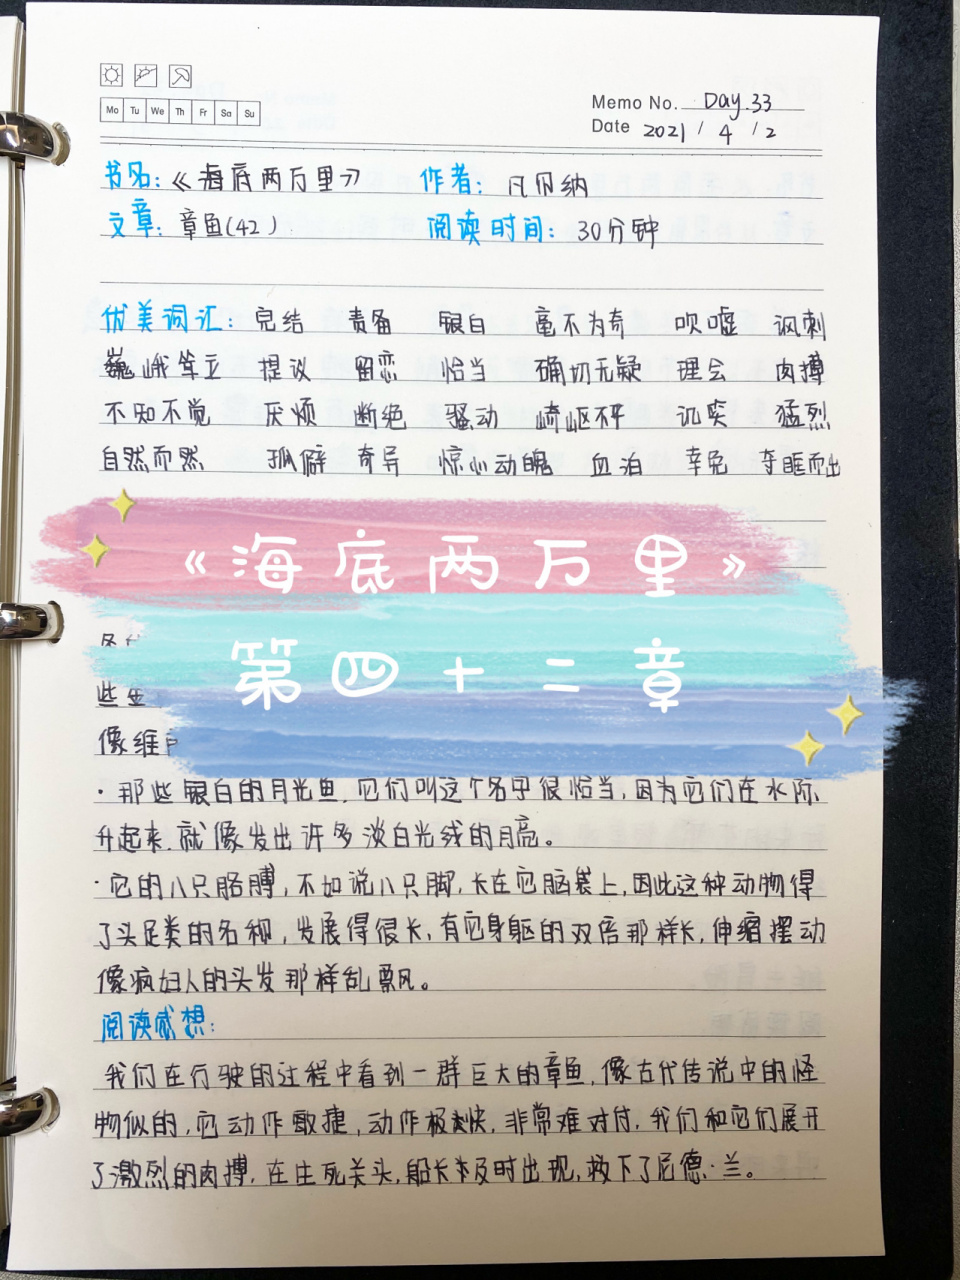 Mo Tu We Th Fr Sa Su
Memo No. Day.33
Date 2021 / 4 / 2
书名:《海底两万里》 作者: 凡尔纳
文章: 章鱼(42) 阅读时间: 30分钟
优美词汇: 完结 责备 银白 毫不为奇 吹嘘 讽刺
巍峨耸立 提议 留恋 恰当 确切无疑 理会 肉搏
不知不觉 厌烦 断绝 骚动 崎岖不平 记实 猛烈
自然而然 孤僻 奇异 惊心动魄 血泊 幸免 夺眶而出
《海底两万里》
第四十二章
些
像维
·那些银白的月光鱼,它们叫这个名字很恰当,因为它们在水际
升起来,就像发出许多淡白光线的月亮。
·它的八只胳膊,不如说八只脚,长在它脑袋上,因此这种动物得
了头足类的名称,发展得很长,有它身躯的双倍那样长,伸缩摆动
像疯妇人的头发那样乱飘。
阅读感想:
我们在行驶的过程中看到一群巨大的章鱼,像古代传说中的怪
物似的,它动作敏捷,动作极快,非常难对付,我们和它们展开
了激烈的肉搏,在生死关头,船长及时出现,救下了尼德·兰。